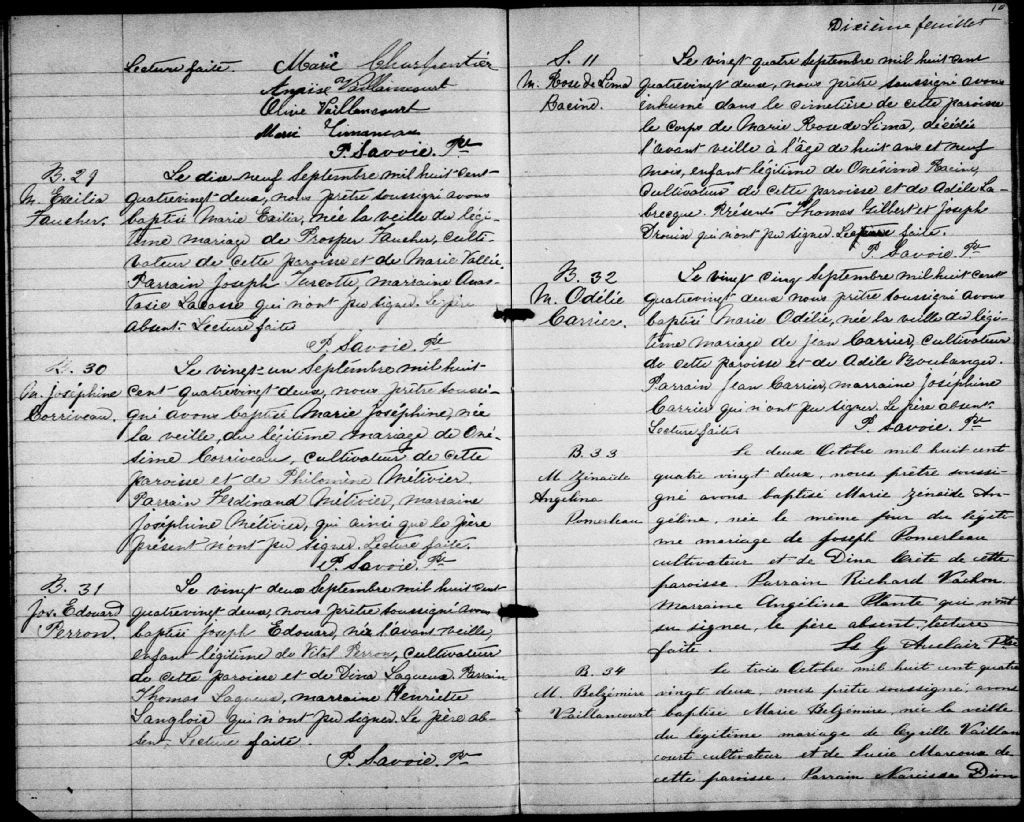 Lecture faite. Marie Charpentier
Vaillancourt
Olive Vaillancourt
Marie
P. Savoie. Ptre
B. 29
M. Exilia
Faucher.
Le dix neuf Septembre mil huit cent
quatrevingt deux, nous prêtre soussigné avons
baptisé Marie Exilia, née la veille du légi-
time mariage de Prosper Faucher, culti-
vateur de cette paroisse et de Marie Vallée.
Parrain Joseph Turcotte, marraine Anas-
tasie Lacasse qui n'ont pu signer. Le père
absent. Lecture faite
P. Savoie. Ptre
B. 30
M. Joséphine
Corriveau.
Le vingt-un Septembre mil huit
cent quatrevingt deux, nous prêtre soussi-
gné avons baptisé Marie Joséphine, née
la veille, du légitime mariage de Oné-
sime Corriveau, cultivateur de cette
paroisse et de Philomène Métivier.
Parrain Ferdinand Métivier, marraine
Joséphine Métivier, qui ainsi que le père
présent n'ont pu signer. Lecture faite.
P. Savoie. Ptre
B. 31
Jos. Edouard
Perron.
Le vingt deux Septembre mil huit cent
quatrevingt deux, nous prêtre soussigné avons
baptisé Joseph Edouard, né l'avant veille,
enfant légitime de Vital Perron, cultivateur
de cette paroisse et de Dina Lagueux. Parrain
Thomas Lagueux, marraine Henriette
Langlois qui n'ont pu signer. Le père ab-
sent. Lecture faite.
P. Savoie. Ptre
10
Dixième feuillet
S. 11
M. Rose de Lima
Racine.
Le vingt quatre Septembre mil huit cent
quatrevingt deux, nous prêtre soussigné avons
inhumé dans le cimetière de cette paroisse
le corps de Marie Rose de Lima, décédée
l'avant veille à l'âge de huit ans et neuf
mois, enfant légitime de Onésime Racine
cultivateur de cette paroisse et de Adèle La-
brecque. Présents Thomas Gilbert et Joseph
Drouin qui n'ont pu signer. faite.
P. Savoie. Ptre
B. 32
M. Odélie
Carrier.
Le vingt cinq Septembre mil huit cent
quatrevingt deux nous prêtre soussigné avons
baptisé Marie Odélie, née la veille du légi-
time mariage de Jean Carrier, cultivateur
de cette paroisse et de Adèle Boulanger.
Parrain Jean Carrier, marraine Joséphine
Carrier qui n'ont pu signer. Le père absent.
Lecture faite. P. Savoie. Ptre
B. 33
M. Zénaïde
Angélina
Pomerleau
Le deux Octobre mil huit cent
quatre vingt deux, nous prêtre soussi-
gné avons baptisé Marie Zénaïde An-
gélina, née le même jour du légiti-
me mariage de Joseph Pomerleau
cultivateur et de Dina de cette
paroisse. Parrain Richard Vachon
marraine Angélina Plante qui n'ont
su signer, le père absent, lecture
faite. G. Auclair Ptre
B. 34
M. Belzémire
Vaillancourt
Le trois Octobre mil huit cent quatre
vingt deux, nous prêtre soussigné, avons
baptisé Marie Belzémire, née la veille
du légitime mariage de Cyrille Vaillan
court cultivateur et de Lucie Marcoux de
cette paroisse. Parrain Narcisse Dion